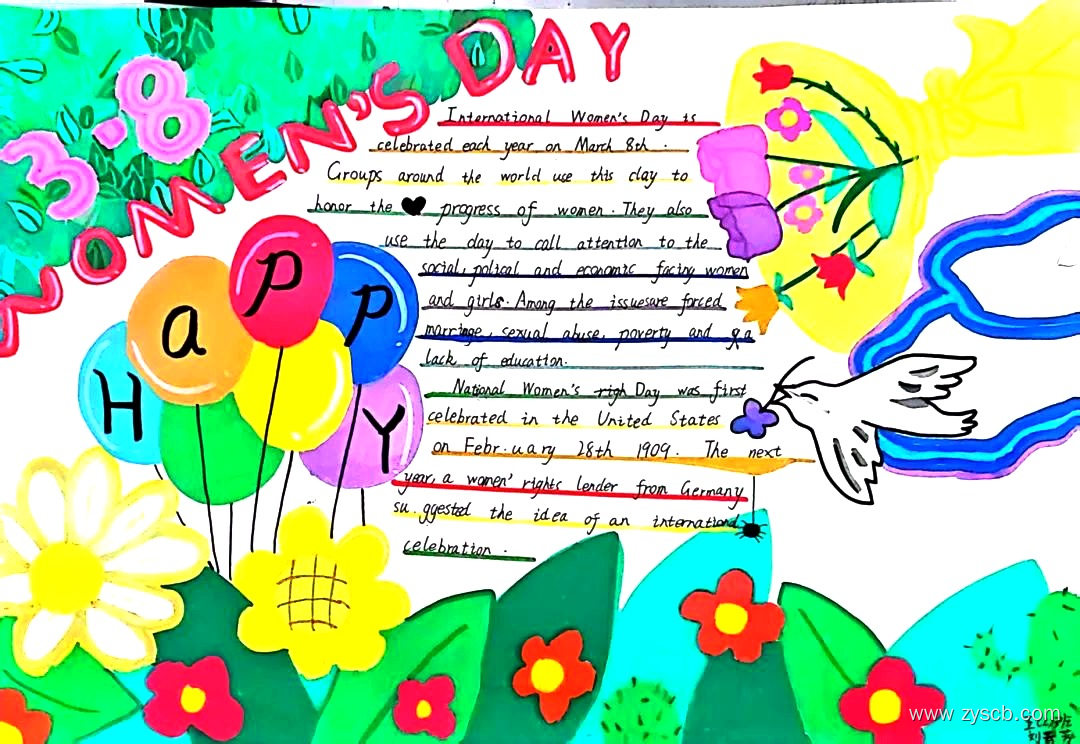 3.8
WOMEN'S DAY
HaPPY
International Women's Day is
celebrated each year on March 8th .
Groups around the world use this clay to
honor the progress of women . They also
use the day to call attention to the
social, politcal and economic facing women
and girls. Among the issuesare forced
marringe, sexual abuse, poverty and
lack of education.
National Women's righ Day was first
celebrated in the United States
on Febr.uary 28th 1909. The next
year, a women' rights lender from Germany
su.ggested the idea of an international
celebration .
www.zyscb.com